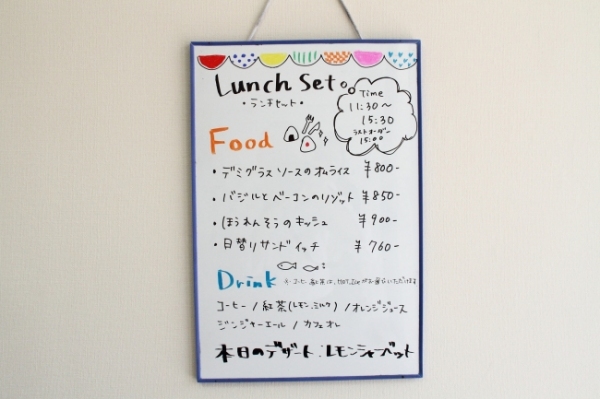 Lunch Set
・ランチセット・
Time
11:30〜
15:30
ラストオーダー
15:00
Food
・デミグラスソースのオムライス ¥800-
・バジルとベーコンのリゾット ¥850-
・ほうれんそうのキッシュ ¥900-
・日替りサンドイッチ ¥760-
Drink
コーヒー 紅茶は、HOT, ICEがお選びいただけます
コーヒー / 紅茶(レモン,ミルク) / オレンジジュース
ジンジャーエール / カフェオレ
本日のデザート:レモンシャーベット